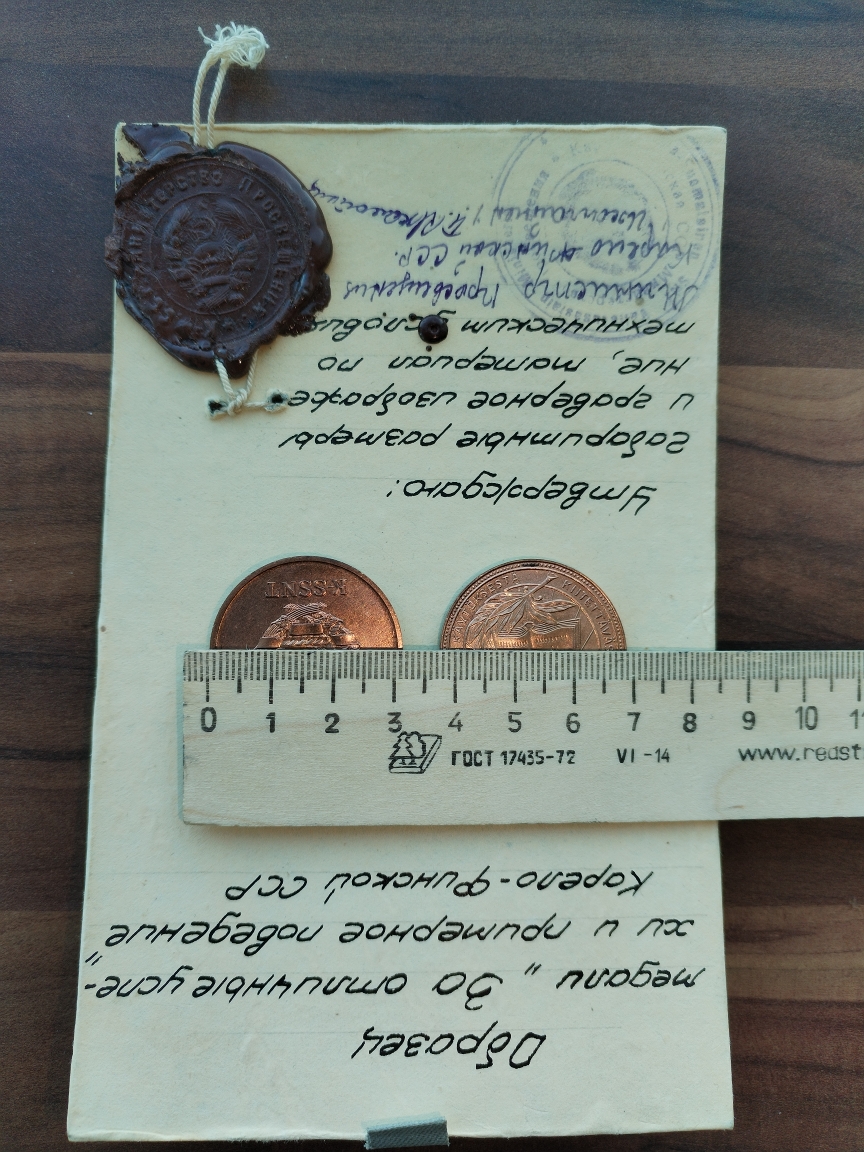 Образец
медали „За отличные успе-
хи и примерное поведение"
Карело-Финской ССР
ГОСТ 17435-72 VI-14 www.redst
0 1 2 3 4 5 6 7 8 9 10 11
K-SSNT
KIITETTÄVÄ
Утверждаю:
габаритные размеры
и граверное изображе
ние, материал по
техническим условия
Министр Просвещения
Карело-Финской ССР.
МИНИСТЕРСТВО ПРОСВЕЩЕНИЯ